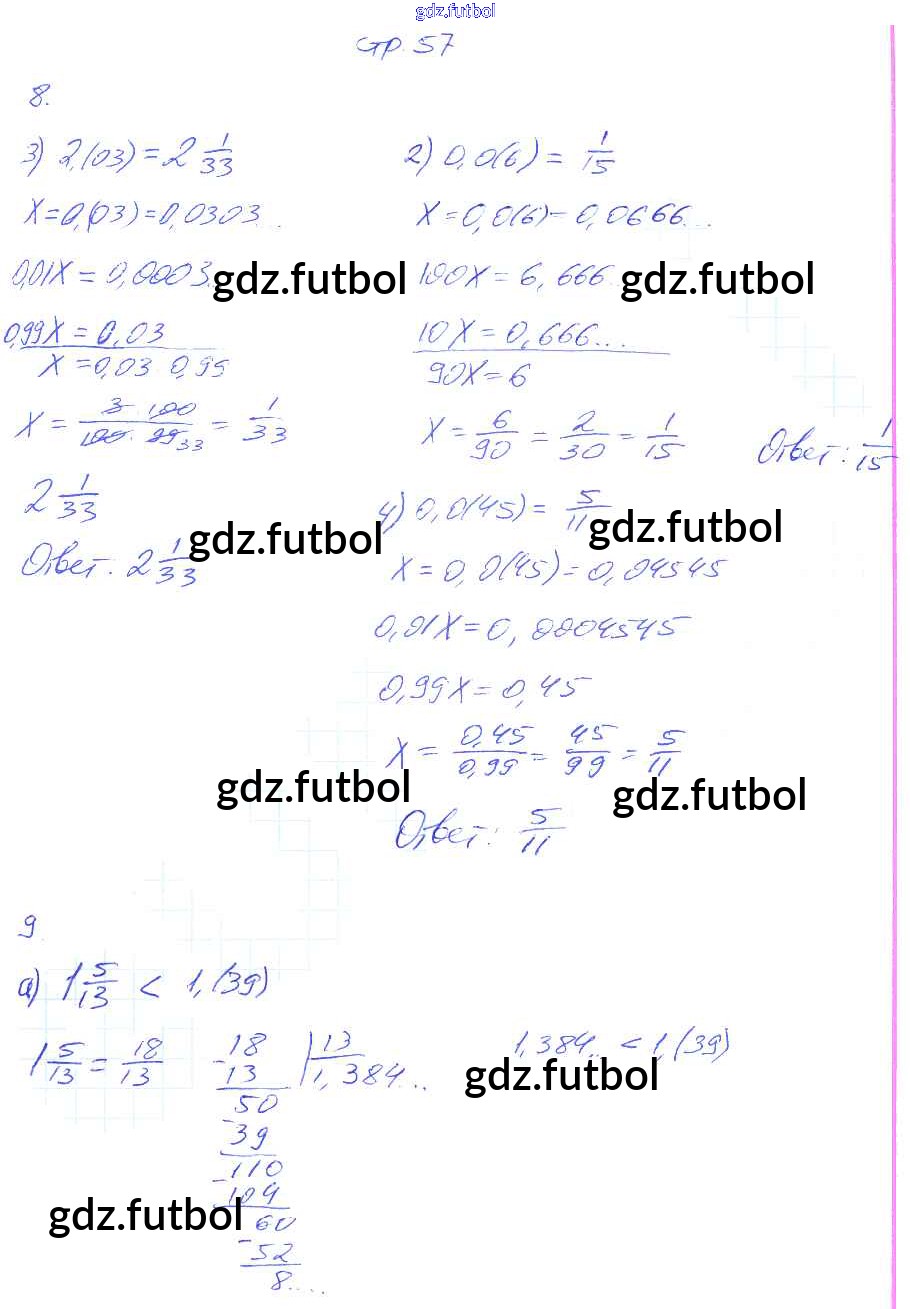 gdz.futbol
стр. 57
8.
3) 2,(03) = 2 1/33
x = 0,(03) = 0,0303...
0,01x = 0,0003...
gdz.futbol
0,99x = 0,03
x = 0,03 : 0,99
x = 3 · 100 / 100 · 99 33 = 1/33
2 1/33
Ответ: 2 1/33
gdz.futbol
2) 0,0(6) = 1/15
x = 0,0(6) = 0,0666...
100x = 6,666...
gdz.futbol
10x = 0,666...
90x = 6
x = 6/90 = 2/30 = 1/15
Ответ: 1/15
4) 0,0(45) = 5/11
gdz.futbol
x = 0,0(45) = 0,04545
0,01x = 0,0004545
0,99x = 0,45
x = 0,45/0,99 = 45/99 = 5/11
gdz.futbol
gdz.futbol
Ответ: 5/11
9.
а) 1 5/13 < 1,(39)
1 5/13 = 18/13
18 | 13
- 13 | 1,384...
50
- 39
110
- 104
60
- 52
8...
1,384... < 1,(39)
gdz.futbol
gdz.futbol